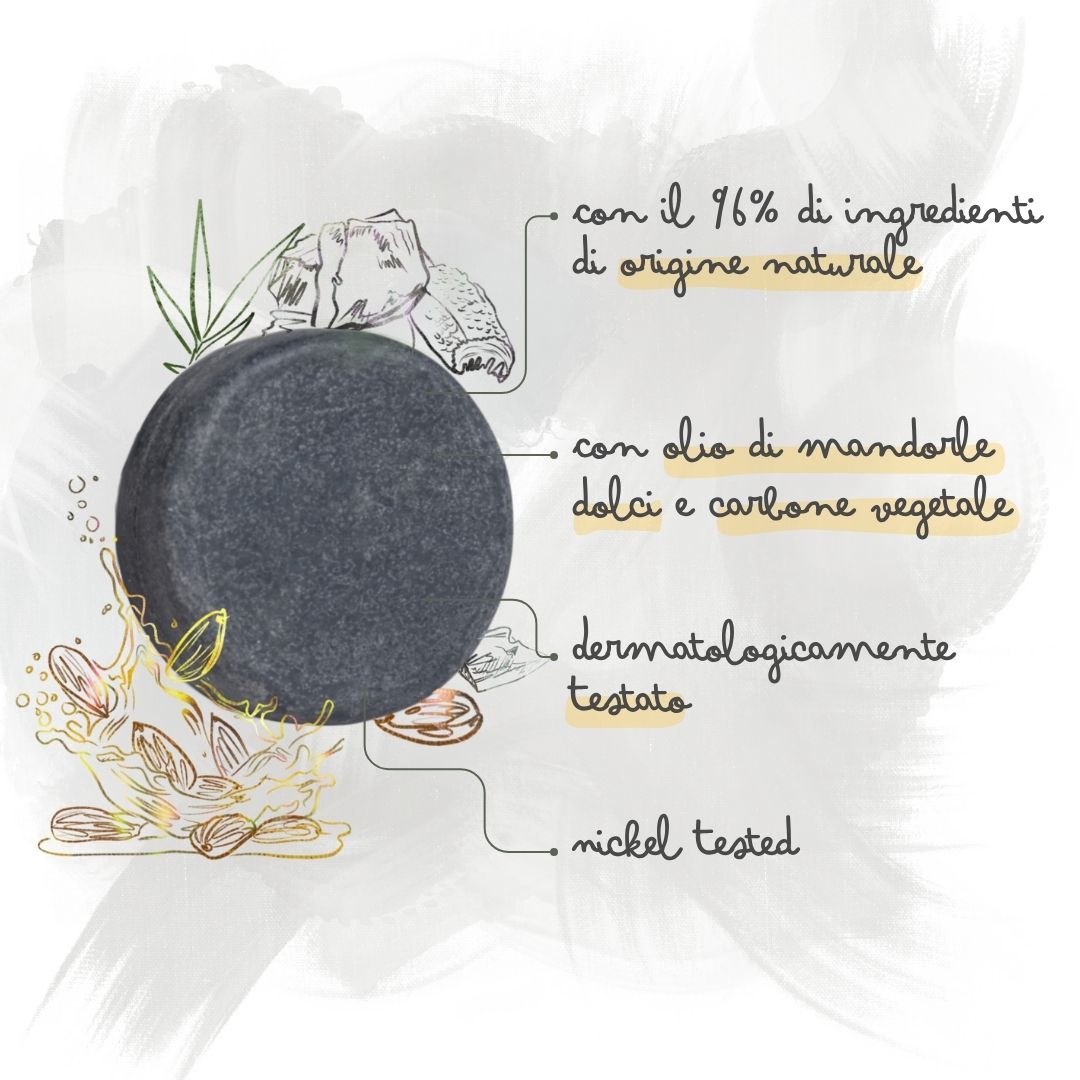 con il 96% di ingredienti
di origine naturale
con olio di mandorle
dolci e carbone vegetale
dermatologicamente
testato
nickel tested